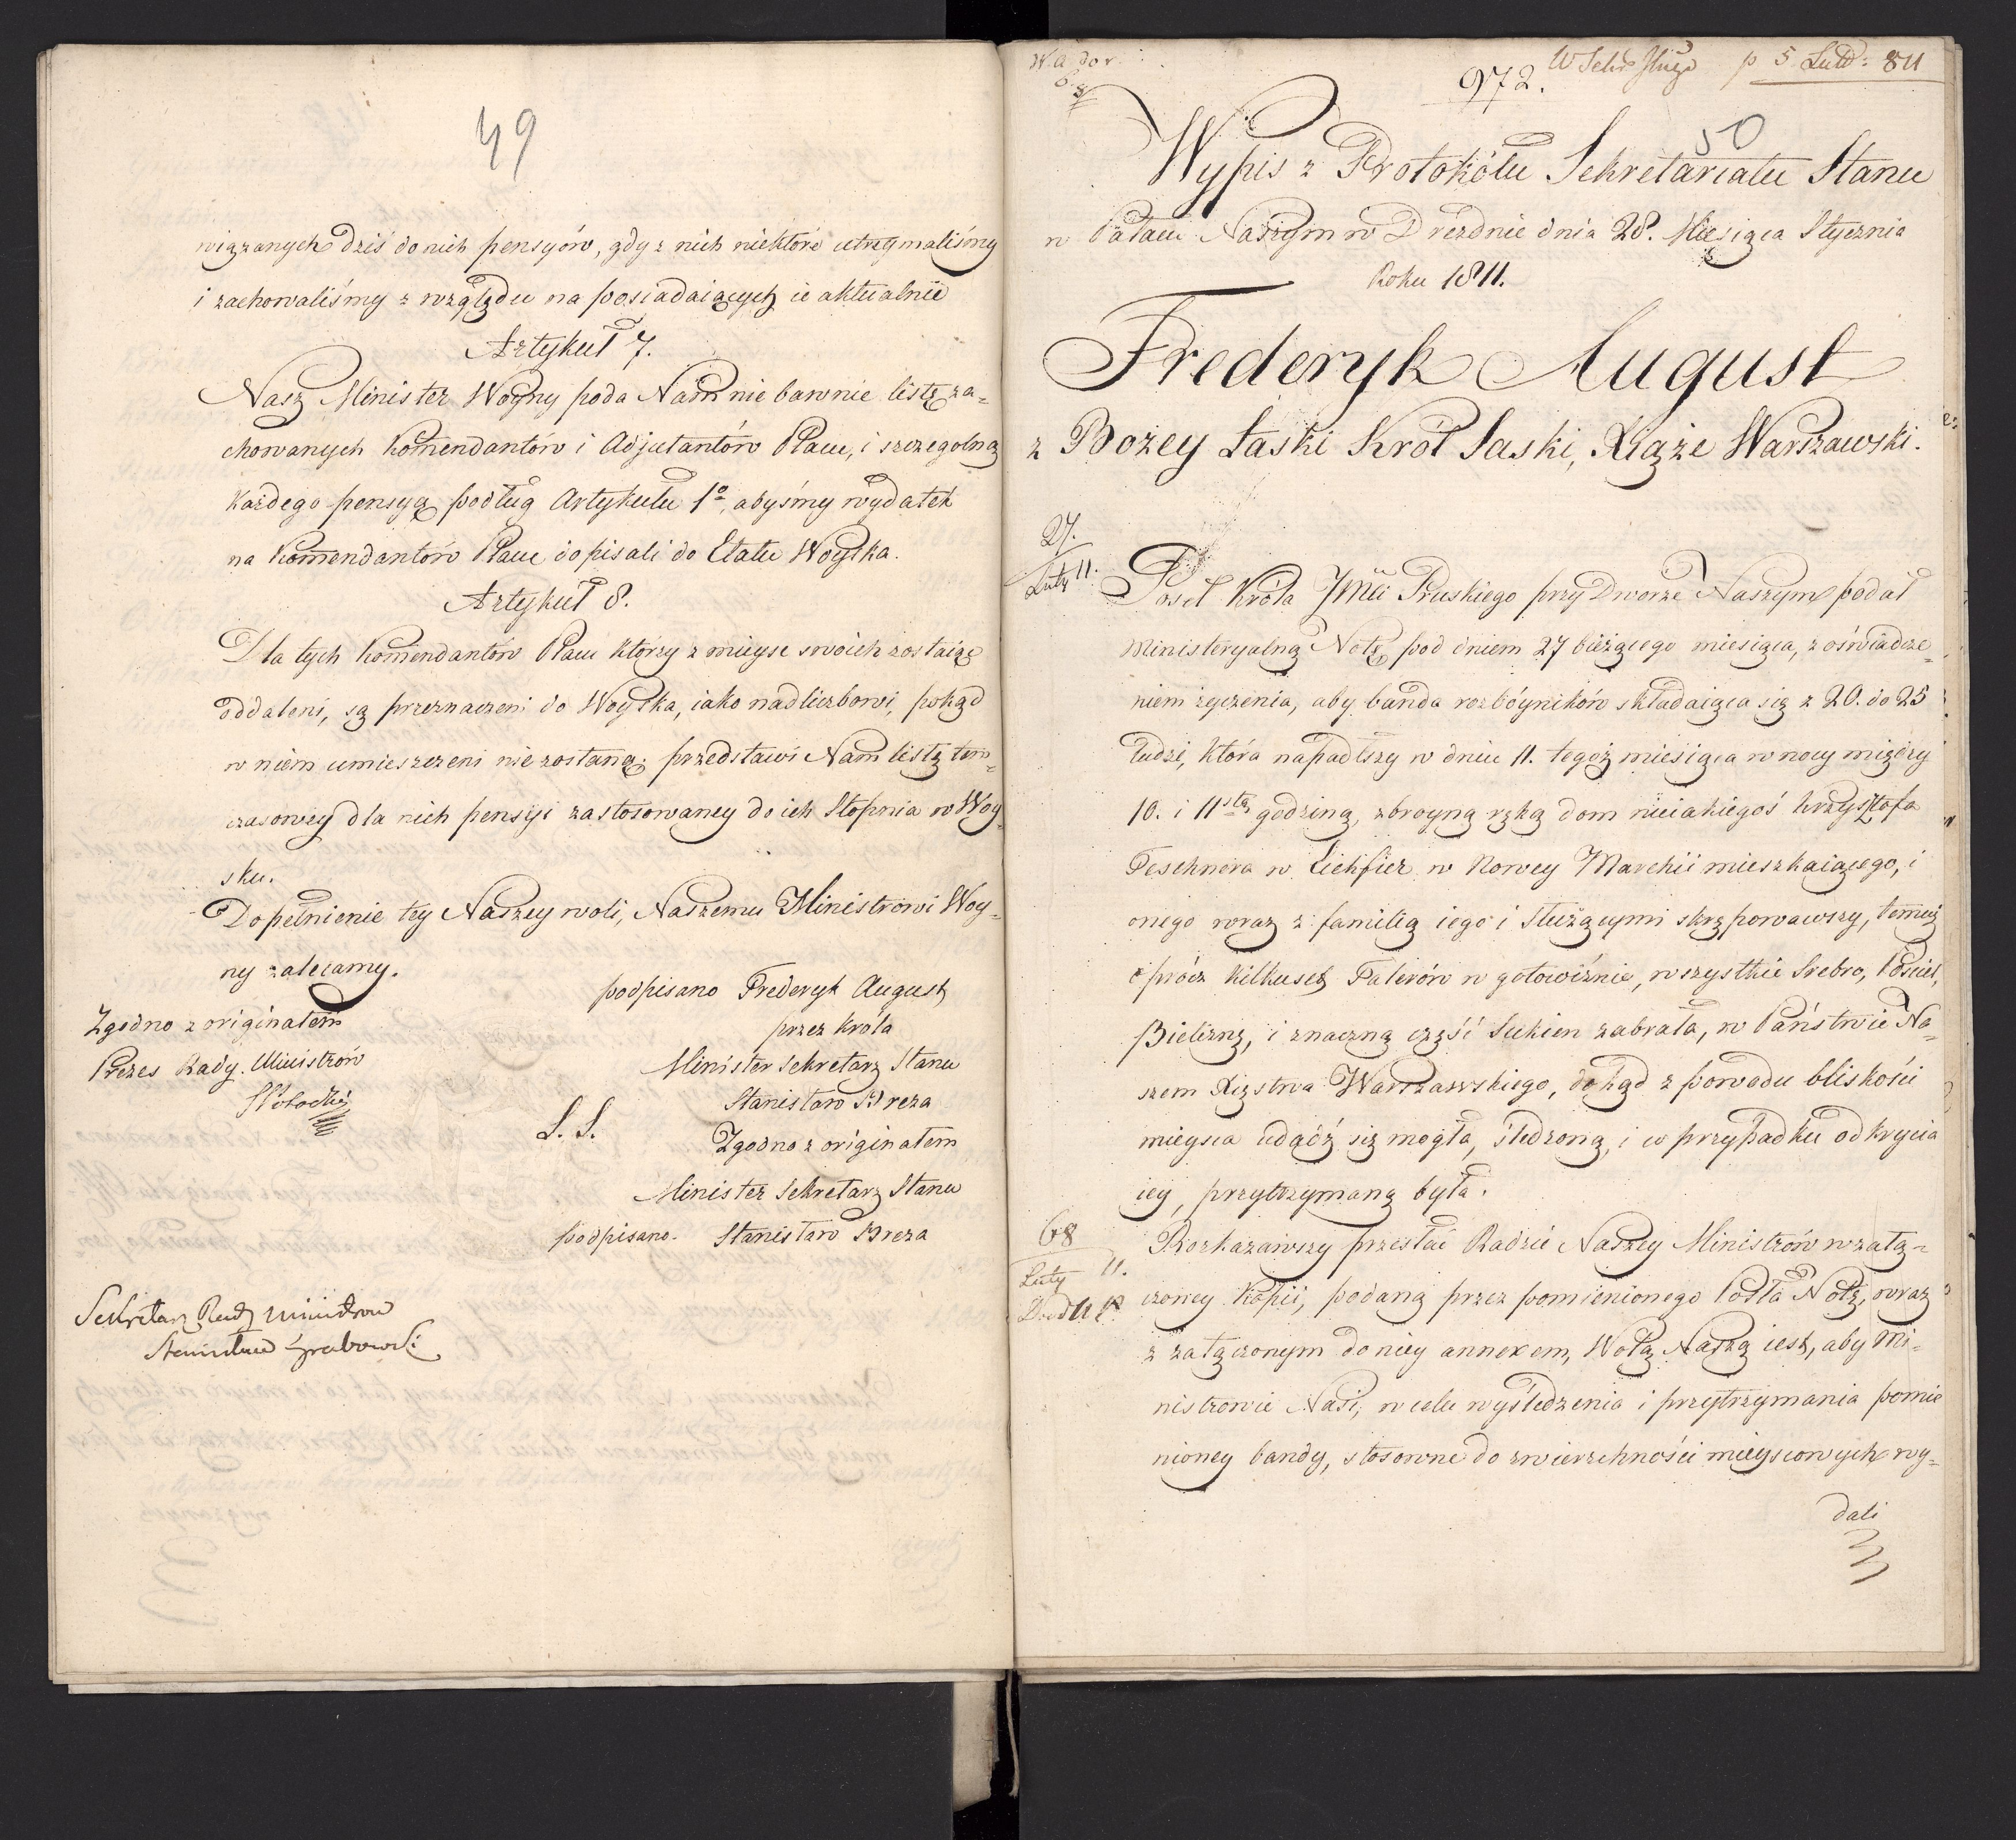 49
wiązanych dziś do nich pensyów, gdy z nich niektóre utrzymaliśmy
i zachowaliśmy z względu na posiadaiących ie aktualnie
Artykuł 7.
Nasz Minister Woyny poda Nam nie bawnie listę za=
chowanych Komendantów i Adjutantów Placu, i szczególną
każdego pensyą podług Artykułu 1º, abyśmy wydatek
na Komendantów Placu dopisali do Etatu Woyska.
Artykuł 8.
Dla tych Komendantów Placu którzy z mieysc swoich zostaią
oddaleni, są przeznaczeni do Woyska, iako nadliczbowi, pokąd
w niem umieszczeni nie zostaną; przedstawi Nam listę tym=
czasowey dla nich pensyi zastosowaney do ich Stopnia w Woy=
sku.
Dopełnienie tey Naszey woli, Naszemu Ministrowi Woy=
ny zalecamy.
podpisano Frederyk August
przez Króla
Minister Sekretarz Stanu
Stanisław Breza
L. S.
Zgodno z originałem
Minister Sekretarz Stanu
podpisano. Stanisław Breza
Zgodno z originałem
Prezes Rady Ministrów
Sekretarz Rady Ministrów
Stanisław Grabowski
972. 5 Lut: 811
50
Wypis z Protokółu Sekretariatu Stanu
w Pałacu Naszym w Dreźdnie dnia 28. Miesiąca Stycznia
Roku 1811.
Frederyk August
z Bożey Łaski Król Saski, Xiąże Warszawski.
27.
Luty 11.
Poseł Króla JMci Pruskiego przy Dworze Naszym podał
Ministeryalną Notę pod dniem 27 bieżącego miesiąca, z oświadcze=
niem życzenia, aby banda rozbóyników składaiąca się z 20. do 25
ludzi, która napadłszy w dniu 11. tegoż miesiąca w nocy między
10. i 11stą godziną, zbroyną ręką dom nieiakiegoś Krzysztofa
Teschnera w Lichfier w Nowey Marchii mieszkaiącego, i
onego wraz z familią iego i służącymi skrępowawszy, temuż
oprócz kilkuset Talerów w gotowiźnie, wszystkie Srebro, Pościel,
Bieliznę, i znaczną część Sukien zabrała, w Państwie Na=
szem Xięstwa Warszawskiego, dokąd z powodu bliskości
mieysca udadź się mogła, śledzoną, i w przypadku odkrycia
iey, przytrzymaną była.
68
Luty 11.
Rozkazawszy przesłać Radzie Naszey Ministrów w załą=
czoney kopii, podaną przez pomienionego Posła Notę, wraz
z załączonym do niey annexem, Wolą Naszą iest, aby Mi=
nistrowie Nasi, w celu wyśledzenia i przytrzymania pomie
nioney bandy, stosowne do zwierzchności mieyscowych wy=
dali